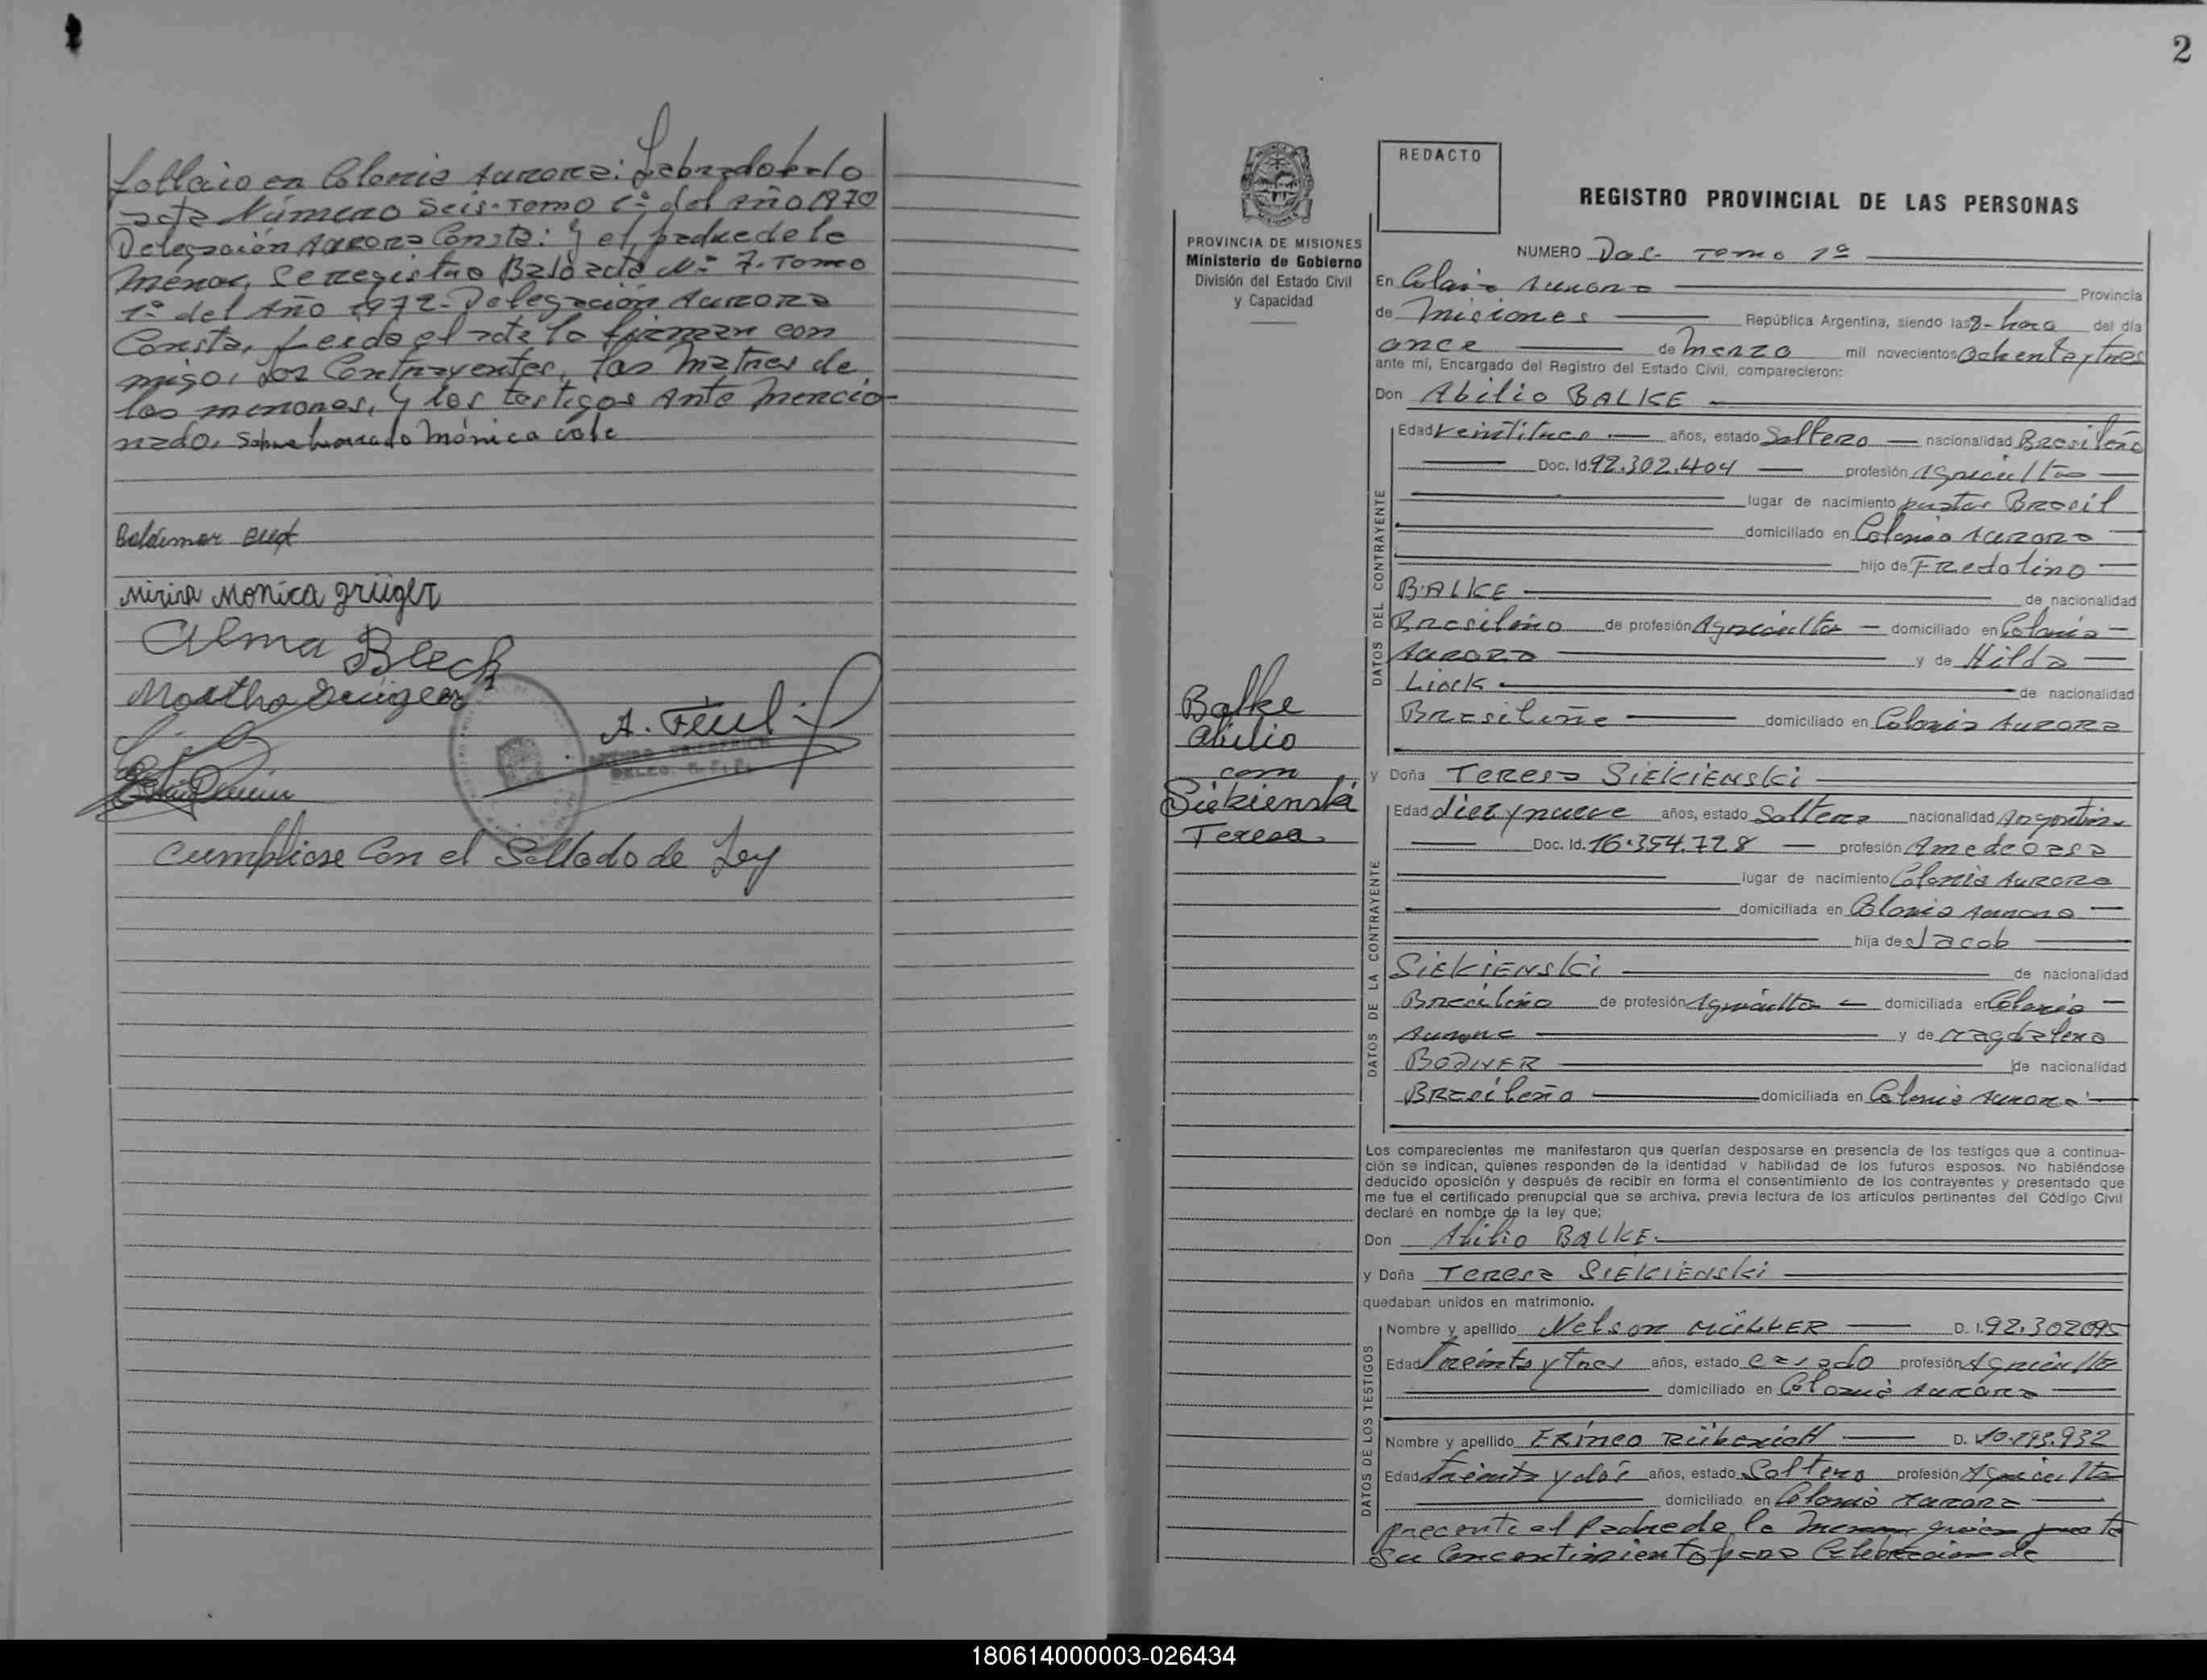 Falleció en Colonia Aurora: Labrado bajo
acta Número Seis. Tomo 1º del Año 1970
Delegación Aurora Consta: y el padre de la
menor, Se registro Bajo acta Nº 7. Tomo
1º del Año 1972 - Delegación Aurora
Consta, Leido el acta la firman con
migo, Los Contrayentes, las madres de
los menores, y los testigos Ante mencio-
nado, Sobre borrado Mónica vale
Miria Monica Grüger
Alma Bleck
Martha Grüger
Cumpliose Con el Sellado de Ley
2
REDACTO
REGISTRO PROVINCIAL DE LAS PERSONAS
PROVINCIA DE MISIONES
Ministerio de Gobierno
División del Estado Civil
y Capacidad
NUMERO Dos - Tomo 1º
En Colonia Aurora Provincia
de Misiones República Argentina, siendo las 8 - hora del día
once de Marzo mil novecientos Ochenta y tres
ante mí, Encargado del Registro del Estado Civil, comparecieron:
Don Abilio BALKE
DATOS DEL CONTRAYENTE
Edad años, estado Soltero nacionalidad Brasileño
Doc. Id. 92.302.404 profesión Agricultor
lugar de nacimiento Brasil
domiciliado en Colonia Aurora
hijo de Fredolino
BALKE de nacionalidad
Brasileño de profesión Agricultor domiciliado en Colonia
Aurora y de Hilda
de nacionalidad
Brasileña domiciliado en Colonia Aurora
Balke
Abilio
com
Siekienski
Teresa
y Doña Teresa SIEKIENSKi
DATOS DE LA CONTRAYENTE
Edad diez y nueve años, estado Soltera nacionalidad Argentina
Doc. Id. 16.354.728 profesión Ama de Casa
lugar de nacimiento Colonia Aurora
domiciliada en Colonia Aurora
hija de Jacob
SiEKiENSKi de nacionalidad
Brasileño de profesión Agricultor domiciliada en Colonia
Aurora y de Magdalena
BODNER de nacionalidad
Brasileña domiciliada en Colonia Aurora
Los comparecientes me manifestaron que querían desposarse en presencia de los testigos que a continua-
ción se indican, quienes responden de la identidad y habilidad de los futuros esposos. No habiéndose
deducido oposición y después de recibir en forma el consentimiento de los contrayentes y presentado que
me fue el certificado prenupcial que se archiva, previa lectura de los artículos pertinentes del Código Civil
declaré en nombre de la ley que:
Don Abilio BALKE.
y Doña Teresa SIEKIENSKi
quedaban unidos en matrimonio.
DATOS DE LOS TESTIGOS
Nombre y apellido Nelson MÜLLER D. I. 92.302095
Edad Treinta y Tres años, estado casado profesión Agricultor
domiciliado en Colonia Aurora
Nombre y apellido D. I.
Edad Treinta y dos años, estado Soltero profesión Agricultor
domiciliado en Colonia Aurora
Presente el Padre de la menor quien presta
Su Consentimiento para Celebracion de
180614000003-026434